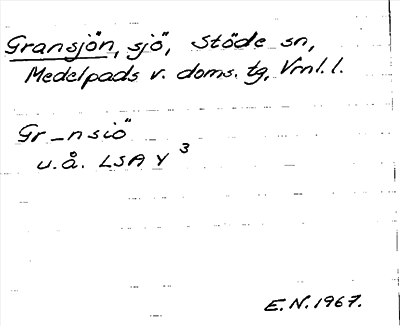 Gransjön, sjö, Stöde sn,
Medelpads v. doms. tg, Vrnl. l.
Gr_nsiö
u.å. LSA Y 3
E.N. 1967.